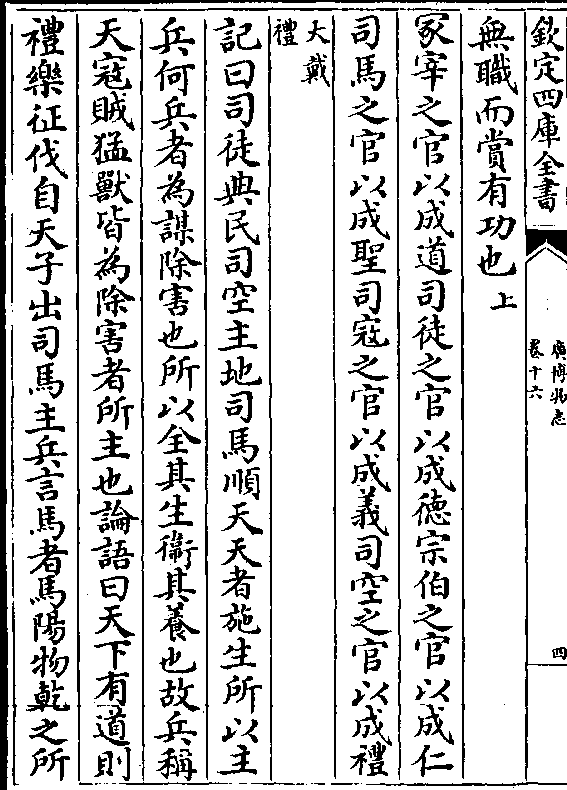 欽定四庫全書
廣博物志
卷十六
四
無職而賞有功也上
冢宰之官以成道司徒之官以成德宗伯之官以成仁
司馬之官以成聖司寇之官以成義司空之官以成禮
大戴
禮
記曰司徒典民司空主地司馬順天天者施生所以主
兵何兵者為謀除害也所以全其生衞其養也故兵稱
天寇賊猛獸皆為除害者所主也論語曰天下有道則
禮樂征伐自天子出司馬主兵言馬者馬陽物乾之所